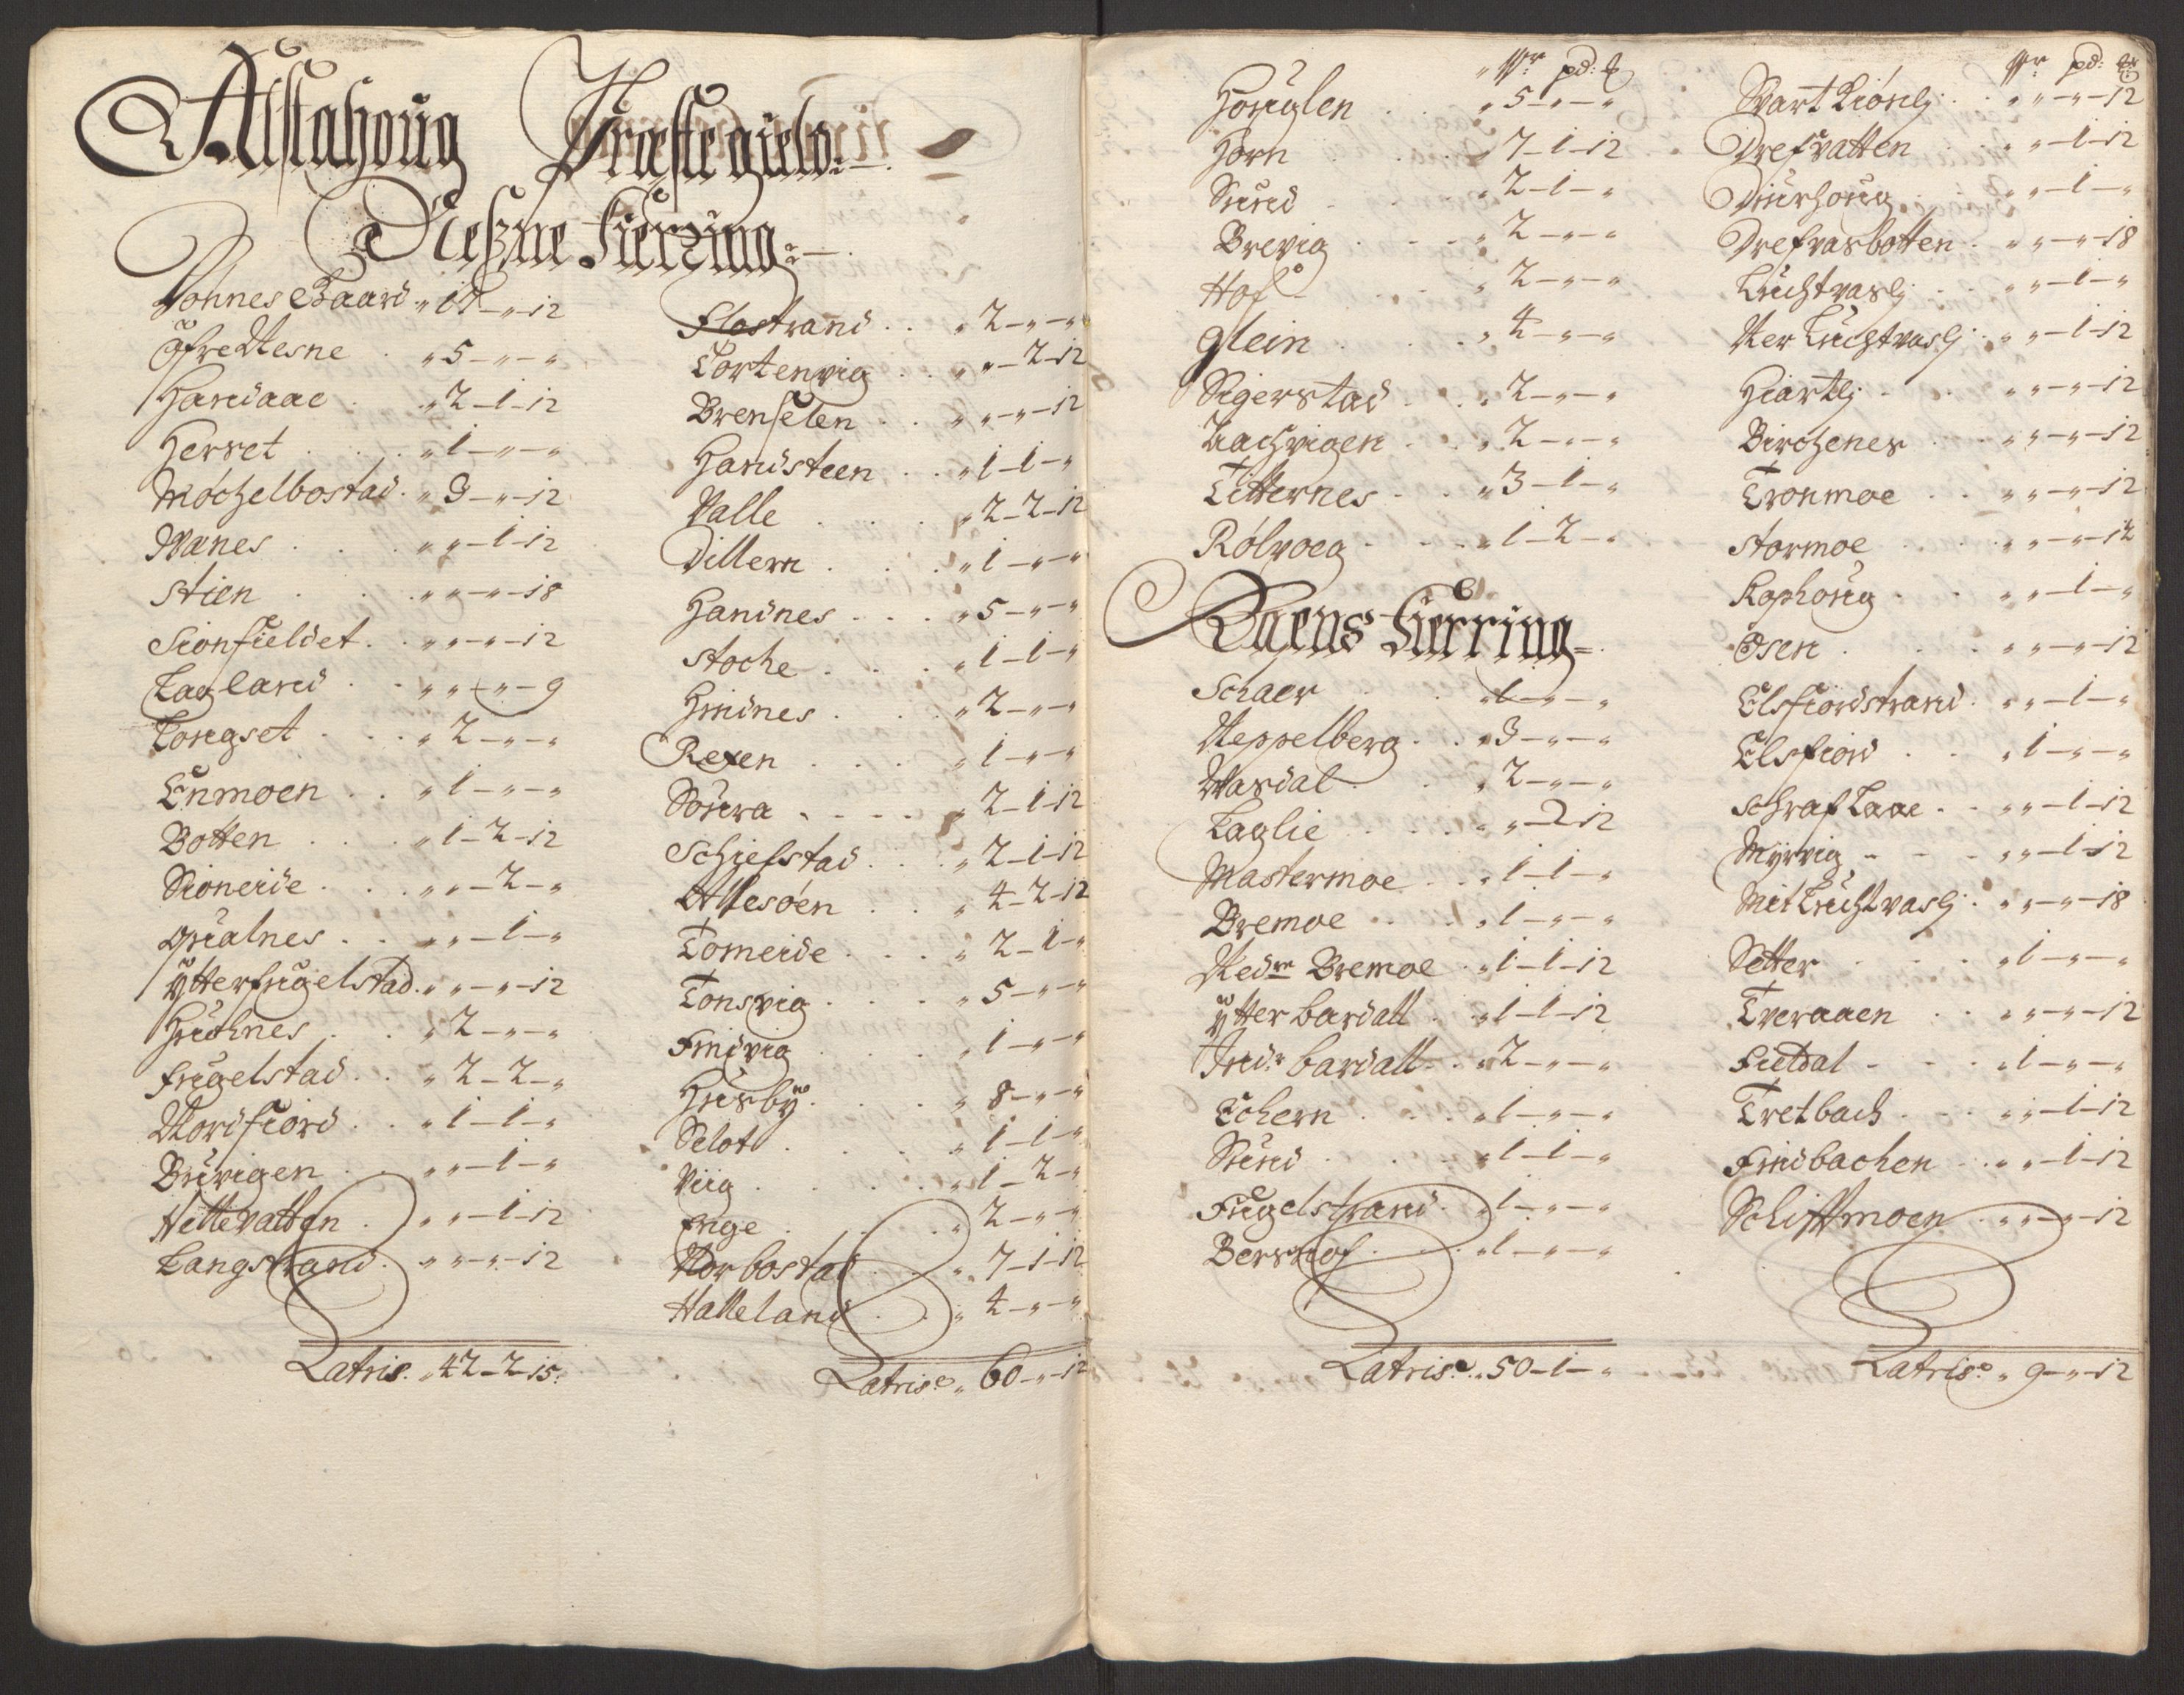 Alstahoug Præstegield
Neßne Fierring
Dohnes Gaard „ 17 – „ – 12
Øfre Nesne „ 5 – „ – „
Handaae „ 2 – 1 – 12
Herset „ 1 – „ – „
Møchelbostad „ 3 – „ – 12
Wænes „ „ – 1 – 12
Stien „ „ – „ – 18
Sionfieldet „ „ – „ – 12
Lagland „ „ – „ – 9
Longset „ 2 – „ – „
Enmoen „ 1 – „ – „
Botten „ 1 – 2 – 12
Sioneide „ „ – 2 – „
Qualnes „ „ – 1 – „
Ytterfugelstad „ „ – „ – 12
Huchnes „ 2 – „ – „
Fugelstad „ 2 – 2 – „
Nordfiord „ 1 – 1 – „
Bruvigen „ „ – 1 – „
Nettevatten „ „ – 1 – 12
Langstrand „ „ – „ – 12
Latris „ 42 – 2 – 15
Flostrand „ 2 – „ – „
Tortenvig „ „ – 2 – 12
Brenselen „ „ – „ – 12
Handsteen „ 1 – 1 – „
Valle „ 2 – 2 – 12
Dillern „ 1 – „ – „
Handnes „ 5 – „ – „
Stoche „ 1 – 1 – „
Hindnes „ 2 – „ – „
Rexen „ 1 – „ – „
Soura „ 2 – 1 – 12
Schiefstad „ 2 – 1 – 12
Allesøen „ 4 – 2 – 12
Tomeide „ 2 – 1 – „
Tonsvig „ 5 – „ – „
Findvig „ 1 – „ – „
Husbÿ „ 8 – „ – „
Selot „ 1 – 1 – „
Viig „ 1 – 2 – „
Enge „ 2 – „ – „
Norbostad „ 7 – 1 – 12
Halleland „ 4 – „ – „
Latris „ 60 – „ – 12
pd:
Houglen „ 5 – „ – „
Horn „ 7 – 1 – 12
Sund „ 2 – 1 – „
Brevig „ 2 – „ – „
Hof „ 2 – „ – „
Glein „ 4 – „ – „
Sigerstad „ 2 – „ – „
Aachvigen „ 2 – „ – „
Titternes „ 3 – 1 – „
Rølvoeg „ 1 – 2 – „
Raens Fierring
Schaer „ 1 – „ – „
Neppelberg „ 3 – „ – „
Wasdal „ 2 – „ – „
Laglie „ „ – 2 12
Mastermoe „ 1 – 1 – „
Bremoe „ 1 – „ – „
Nedre Bremoe „ 1 – 1 – 12
Ytter bardall „ 1 – 1 – 12
Indr bardall „ 2 – „ – „
Echern „ 1 – „ – „
Sund „ 1 – 1 – „
Fugelstrand „ 1 – „ – „
Bersnof „ 1 – „ – „
Latris „ 50 – 1 – „
pd:
Svart Liønlj „ „ – „ – 12
Drefvatten „ „ – 1 – 12
Diurhoug „ „ – 1 – „
Drefvasbotten „ „ – „ – 18
Luchtvaslj „ „ – 1 – „
Ner Luchtvaslj „ „ – 1 – 12
Hiartlj „ „ – „ – 12
Birchenes „ „ – „ – 12
Tronmoe „ „ – „ – 12
Stormoe „ „ – „ – 12
Raphoug „ „ – 1 – „
Osen „ „ – „ – 12
Elsfiordstrand „ „ – 1 – „
Elsfiord „ 1 – „ – „
Schraflaae „ „ – 1 – 12
Myrvig „ „ – 1 – 12
Mit Luchtvaslj „ „ – „ – 18
Setter „ 1 – „ – „
Tveraaen „ „ – „ – 12
Fieldal „ 1 – „ – „
Tretbach „ „ – 1 – 12
Findbachen „ „ – 1 – 12
Schiftmoen „ „ – „ – 12
Latris „ 9 – „ – 12